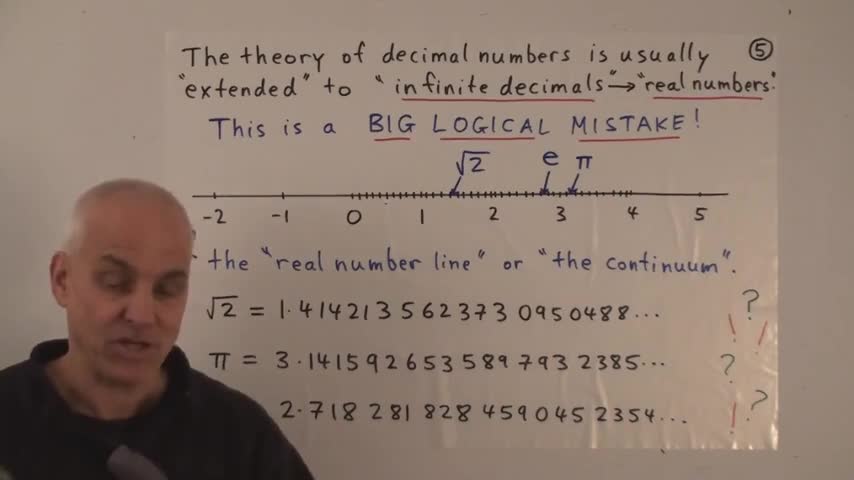 The theory of decimal numbers is usually ⑤
"extended" to "infinite decimals" → "real numbers".
This is a BIG LOGICAL MISTAKE!
√2 e π
-2 -1 0 1 2 3 4 5
the "real number line" or "the continuum".
√2 = 1.4142135623730950488... ?
π = 3.1415926535897932385... ! ! ?
2.718 281 828 459 045 2354... ! ?